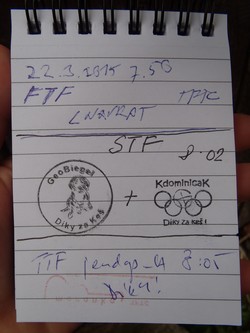 22.3.2015 7.50
FTF TFTC
STF 8.02
GeoBiesel
Díky za Keš
+
KdominicaK
Díky za Keš!
TTF 8:05